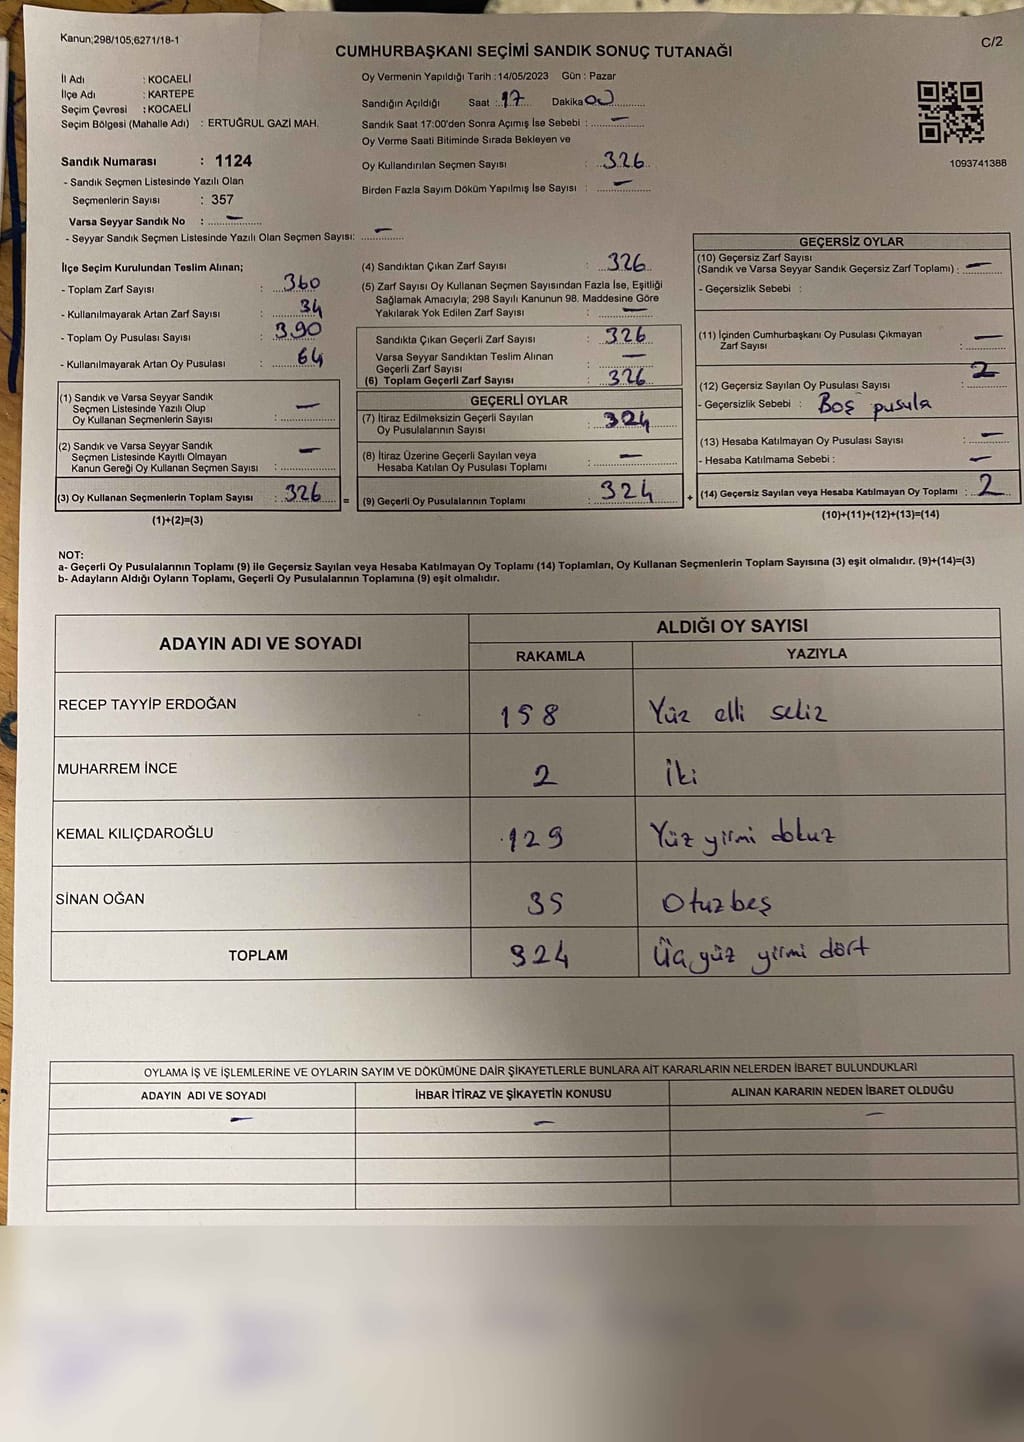 Kanun;298/105;6271/18-1
C/2
CUMHURBAŞKANI SEÇİMİ SANDIK SONUÇ TUTANAĞI
İl Adı : KOCAELİ
İlçe Adı : KARTEPE
Seçim Çevresi : KOCAELİ
Seçim Bölgesi (Mahalle Adı) : ERTUĞRUL GAZİ MAH.
Sandık Numarası : 1124
- Sandık Seçmen Listesinde Yazılı Olan
Seçmenlerin Sayısı : 357
Varsa Seyyar Sandık No : —
- Seyyar Sandık Seçmen Listesinde Yazılı Olan Seçmen Sayısı: —
Oy Vermenin Yapıldığı Tarih : 14/05/2023 Gün : Pazar
Sandığın Açıldığı Saat : 17 Dakika 00
Sandık Saat 17:00'den Sonra Açımış İse Sebebi : —
Oy Verme Saati Bitiminde Sırada Bekleyen ve
Oy Kullandırılan Seçmen Sayısı : 326
Birden Fazla Sayım Döküm Yapılmış İse Sayısı : —
1093741388
İlçe Seçim Kurulundan Teslim Alınan;
- Toplam Zarf Sayısı : 360
- Kullanılmayarak Artan Zarf Sayısı : 34
- Toplam Oy Pusulası Sayısı : 390
- Kullanılmayarak Artan Oy Pusulası : 64
(1) Sandık ve Varsa Seyyar Sandık
Seçmen Listesinde Yazılı Olup
Oy Kullanan Seçmenlerin Sayısı : —
(2) Sandık ve Varsa Seyyar Sandık
Seçmen Listesinde Kayıtlı Olmayan
Kanun Gereği Oy Kullanan Seçmen Sayısı : —
(3) Oy Kullanan Seçmenlerin Toplam Sayısı : 326 =
(1)+(2)=(3)
(4) Sandıktan Çıkan Zarf Sayısı : 326
(5) Zarf Sayısı Oy Kullanan Seçmen Sayısından Fazla İse, Eşitliği
Sağlamak Amacıyla; 298 Sayılı Kanunun 98. Maddesine Göre
Yakılarak Yok Edilen Zarf Sayısı : —
Sandıkta Çıkan Geçerli Zarf Sayısı : 326
Varsa Seyyar Sandıktan Teslim Alınan
Geçerli Zarf Sayısı : —
(6) Toplam Geçerli Zarf Sayısı : 326
GEÇERLİ OYLAR
(7) İtiraz Edilmeksizin Geçerli Sayılan
Oy Pusulalarının Sayısı : 324
(8) İtiraz Üzerine Geçerli Sayılan veya
Hesaba Katılan Oy Pusulası Toplamı : —
(9) Geçerli Oy Pusulalarının Toplamı : 324 +
GEÇERSİZ OYLAR
(10) Geçersiz Zarf Sayısı
(Sandık ve Varsa Seyyar Sandık Geçersiz Zarf Toplamı) : —
- Geçersizlik Sebebi :
(11) İçinden Cumhurbaşkanı Oy Pusulası Çıkmayan
Zarf Sayısı : —
(12) Geçersiz Sayılan Oy Pusulası Sayısı : 2
- Geçersizlik Sebebi : Boş pusula
(13) Hesaba Katılmayan Oy Pusulası Sayısı : —
- Hesaba Katılmama Sebebi : —
(14) Geçersiz Sayılan veya Hesaba Katılmayan Oy Toplamı : 2
(10)+(11)+(12)+(13)=(14)
NOT:
a- Geçerli Oy Pusulalarının Toplamı (9) ile Geçersiz Sayılan veya Hesaba Katılmayan Oy Toplamı (14) Toplamları, Oy Kullanan Seçmenlerin Toplam Sayısına (3) eşit olmalıdır. (9)+(14)=(3)
b- Adayların Aldığı Oyların Toplamı, Geçerli Oy Pusulalarının Toplamına (9) eşit olmalıdır.
ADAYIN ADI VE SOYADI
ALDIĞI OY SAYISI
RAKAMLA YAZIYLA
RECEP TAYYİP ERDOĞAN 158 Yüz elli sekiz
MUHARREM İNCE 2 İki
KEMAL KILIÇDAROĞLU 129 Yüz yirmi dokuz
SİNAN OĞAN 35 Otuz beş
TOPLAM 324 Üç yüz yirmi dört
OYLAMA İŞ VE İŞLEMLERİNE VE OYLARIN SAYIM VE DÖKÜMÜNE DAİR ŞİKAYETLERLE BUNLARA AİT KARARLARIN NELERDEN İBARET BULUNDUKLARI
ADAYIN ADI VE SOYADI İHBAR İTİRAZ VE ŞİKAYETİN KONUSU ALINAN KARARIN NEDEN İBARET OLDUĞU
— — —